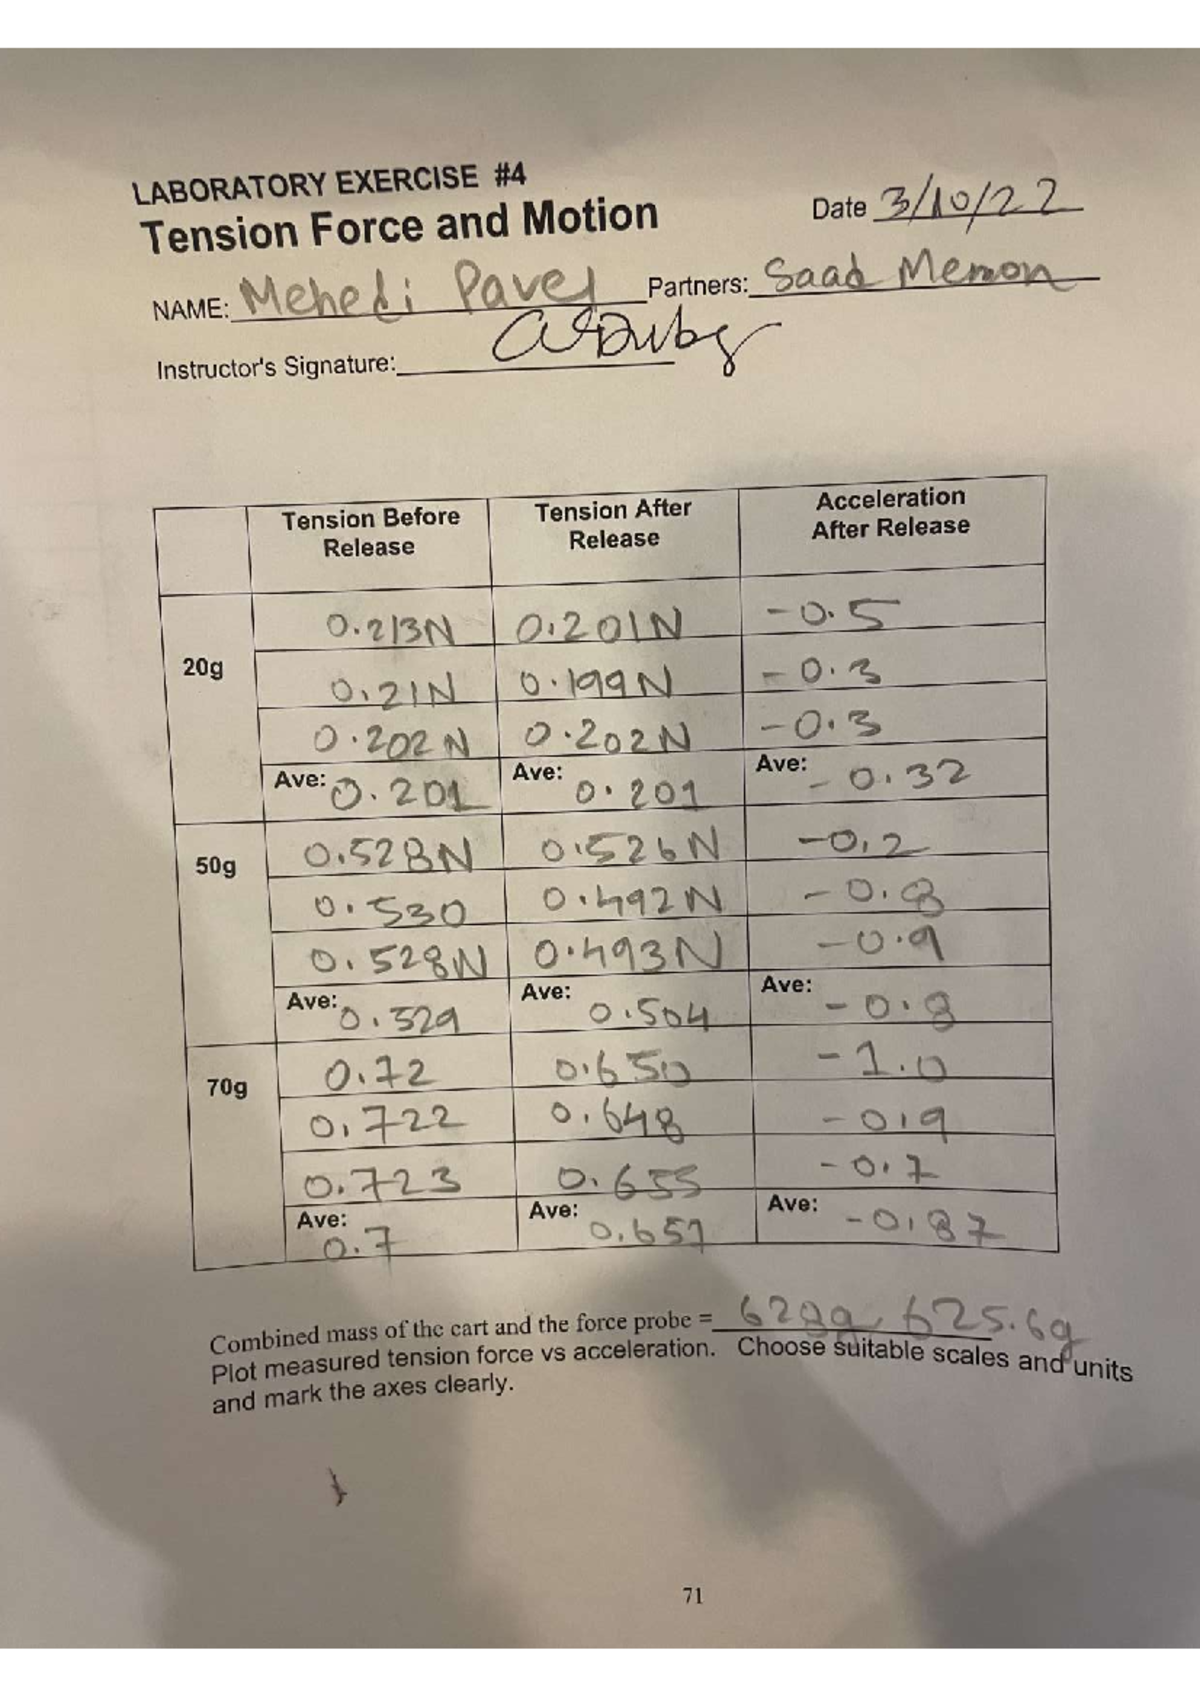 LABORATORY EXERCISE #4
Tension Force and Motion
Date 3/10/22
NAME: Mehedi Pavel Partners: Saad Memon
Instructor's Signature:
Tension Before Release Tension After Release Acceleration After Release
20g
0.213N 0.201N -0.5
0.21N 0.199N -0.3
0.202N 0.202N -0.3
Ave: 0.201 Ave: 0.201 Ave: -0.32
50g
0.528N 0.526N -0.2
0.530 0.492N -0.8
0.528N 0.493N -0.9
Ave: 0.529 Ave: 0.504 Ave: -0.8
70g
0.72 0.650 -1.0
0.722 0.648 -0.9
0.723 0.655 -0.7
Ave: 0.7 Ave: 0.651 Ave: -0.87
Combined mass of the cart and the force probe = 628g, 625.6g
Plot measured tension force vs acceleration. Choose suitable scales and units
and mark the axes clearly.
71